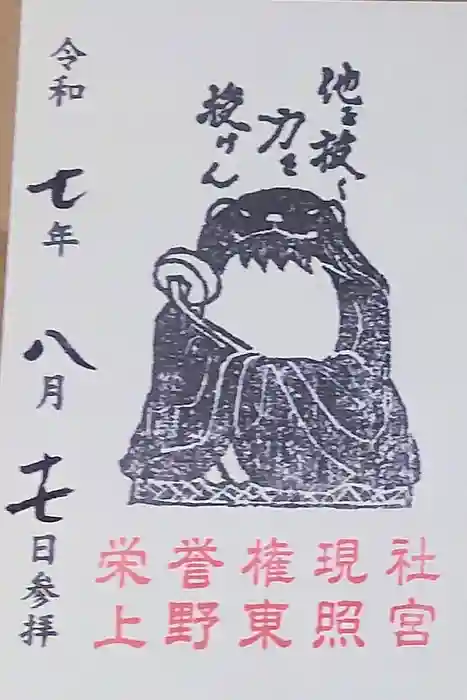 他を抜く
力を
授けん
令和七年八月十七日参拝
栄誉権現社
上野東照宮